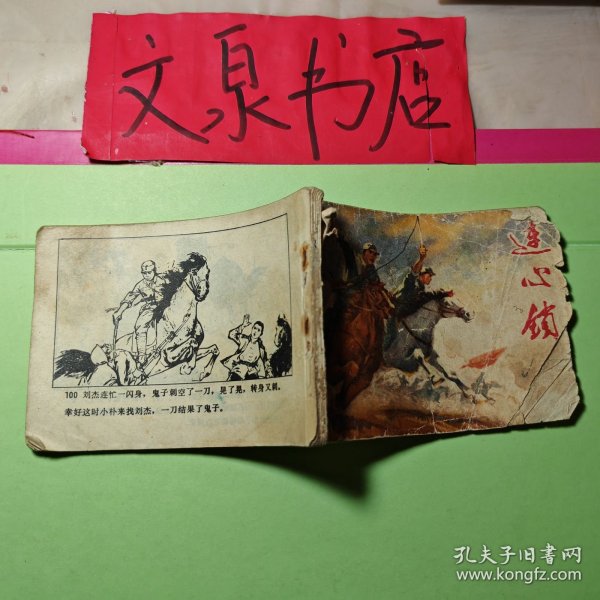 文泉书店
连心锁
100 刘杰连忙一闪身，鬼子刺空了一刀，晃了晃，转身又刺。
幸好这时小朴来找刘杰，一刀结果了鬼子。
孔夫子旧书网
www.kongfz.com